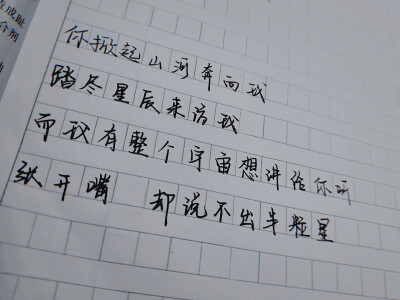 你掀起山河奔向我
踏尽星辰来访我
而我有整个宇宙想讲给你听
张开嘴 却说不出半粒星